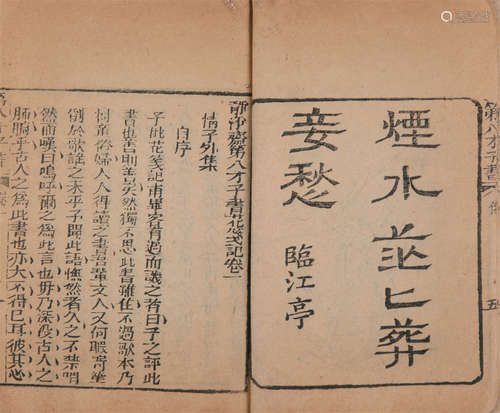 第八才子書
煙水茫匕葬
妾愁
臨江亭
靜淨齋第八才子書花箋記卷一
情子外集
自序
子批花箋記甫畢客有過而議之者曰子之評此
書也善則善矣然獨不思此書雖佳不過歌本乃
村童俗婦人人得讀之書吾輩文人又何暇寄筆
倒於歌謠之末乎子聞此語憮然者久之不禁喟
然而嘆曰嗚呼爾之為此言也毋乃深沒古人之
肺胸乎古人之為此書也亦大不得已耳彼其心